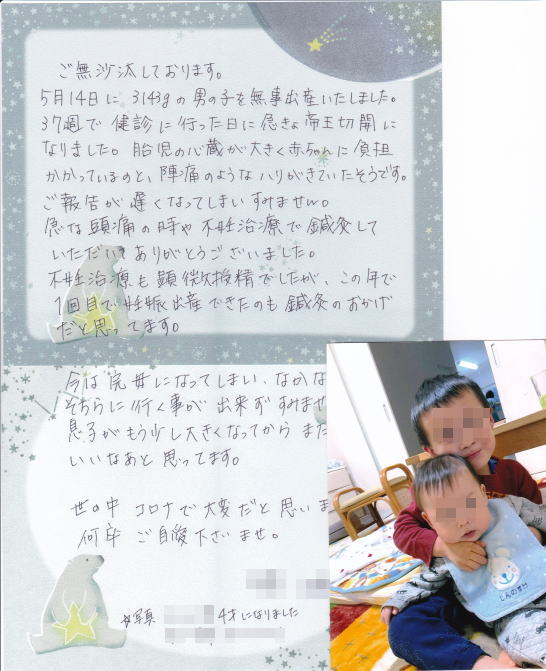 ご無沙汰しております。
5月14日に 3143gの男の子を無事出産いたしました。
37週で健診に行った日に急きょ帝王切開に
なりました。胎児の心蔵が大きく赤ちゃんに負担
かかっているのと、陣痛のようなハリがきていたそうです。
ご報告が遅くなってしまいすみません。
急な頭痛の時や不妊治療で鍼灸して
いただいてありがとうございました。
不妊治療も顕微授精でしたが、この年で
1回目で妊娠出産できたのも鍼灸のおかげ
だと思ってます。
今は完母になってしまい、なかな
そちらに行く事が出来ずすみませ
息子がもう少し大きくなってから また
いいなあと思ってます。
世の中 コロナで大変だと思いま
何卒 ご自愛下さいませ。
写真 4才になりました
しんのすけ